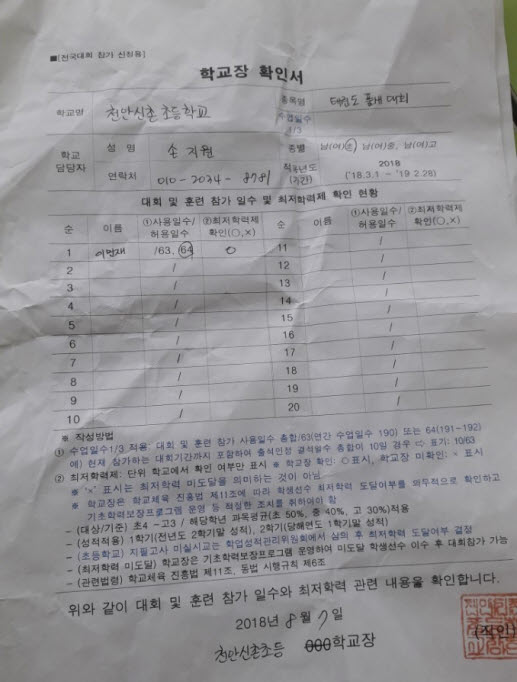 ■[전국대회 참가 신청용]
학교장 확인서
학교명 천안신촌초등학교 종목명 태권도 품새 대회
수업일수 1/3
학교 담당자 성 명 손지원 종별 남(여)초 남(여)중, 남(여)고
연락처 010-2034-8781 적용년도 (기간) 2018 ('18.3.1 ~ '19.2.28)
대회 및 훈련 참가 일수 및 최저학력제 확인 현황
순 이름 ①사용일수/허용일수 ②최저학력제 확인(○,×) 순 이름 ①사용일수/허용일수 ②최저학력제 확인(○,×)
1 /63, 64 ○ 11 /
2 / 12 /
3 / 13 /
4 / 14 /
5 / 15 /
6 / 16 /
7 / 17 /
8 / 18 /
9 / 19 /
10 / 20 /
※ 작성방법
① 수업일수1/3 적용: 대회 및 훈련 참가 사용일수 총합/63(연간 수업일수 190) 또는 64(191~192)
예) 현재 참가하는 대회기간까지 포함하여 출석인정 결석일수 총합이 10일 경우 ⇨ 표기: 10/63
② 최저학력제: 단위 학교에서 확인 여부만 표시 ※ 학교장 확인: ○표시, 학교장 미확인: × 표시
※ '×' 표시는 최저학력 미도달을 의미하는 것이 아님.
※ 학교장은 학교체육 진흥법 제11조에 따라 학생선수 최저학력 도달여부를 의무적으로 확인하고
기초학력보장프로그램 운영 등 적절한 조치를 취하여야 함
- (대상/기준) 초4 ~고3 / 해당학년 과목평균(초 50%, 중 40%, 고 30%)적용
- (성적적용) 1학기(전년도 2학기말 성적), 2학기(당해년도 1학기말 성적)
- (초등학교) 지필고사 미실시교는 학업성적관리위원회에서 심의 후 최저학력 도달여부 결정
- (최저학력 미도달) 학교장은 기초학력보장프로그램 운영하여 미도달 학생선수 이수 후 대회참가 가능
- (관련법령) 학교체육 진흥법 제11조, 동법 시행규칙 제6조
위와 같이 대회 및 훈련 참가 일수와 최저학력 관련 내용을 확인합니다.
2018년 8월 7일
천안신촌초등 000학교장 (직인)